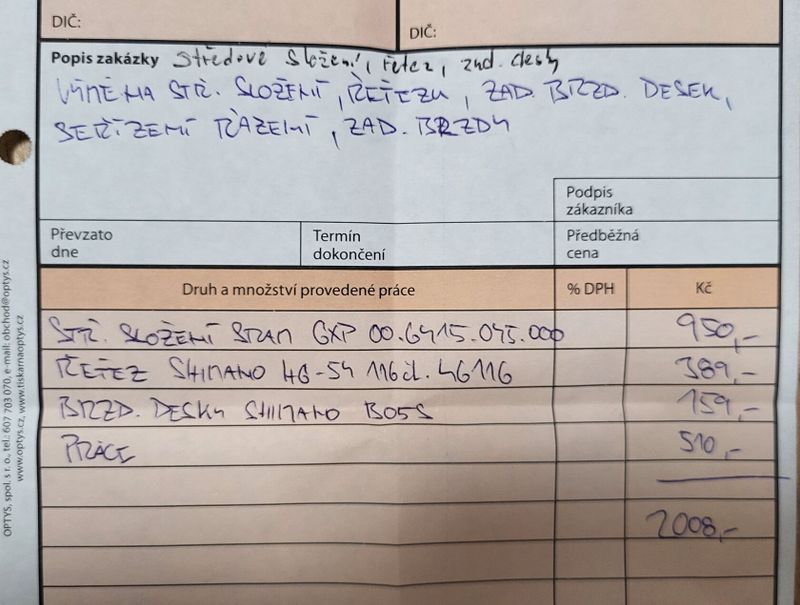 DIČ:
DIČ:
Popis zakázky středové složení, řetez, zad. desky
VÝMĚNA STŘ. SLOŽENÍ, ŘETĚZU, ZAD. BRZD. DESEK,
SEŘÍZENÍ ŘAZENÍ, ZAD. BRZDY
Podpis
zákazníka
Převzato
dne
Termín
dokončení
Předběžná
cena
Druh a množství provedené práce % DPH Kč
STŘ. SLOŽENÍ SRAM GXP 00.6415.045.000 950,-
ŘETĚZ SHIMANO HG-54 116čl. 46116 389,-
BRZD. DESKY SHIMANO B05S 159,-
PRÁCE 510,-
2008,-
OPTYS, spol. s r. o., tel.: 607 703 070, e-mail: obchod@optys.cz
www.optys.cz, www.tiskarnaoptys.cz